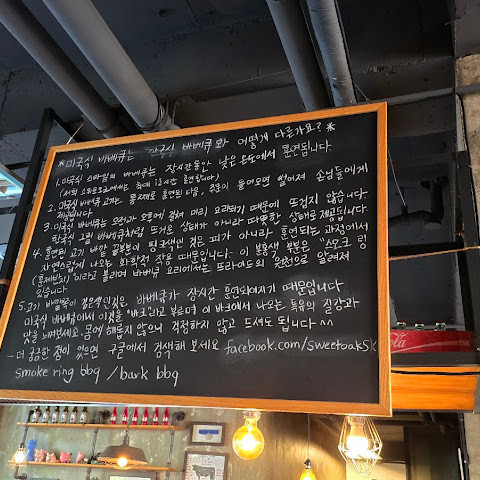 *미국식 바베큐는 한국식 바베큐와 어떻게 다른가요?*
1. 미국식 스타일의 바베큐는 장시간동안 낮은온도에서 훈연됩니다.
2. 미국식 바베큐 고기는 통고기째로 훈연된 다음, 주문이 들어오면 썰어져 손님들에게
제공됩니다
3. 미국식 바베큐는 오랜시간 오븐에 걸쳐 미리 요리되기 때문에 뜨겁지 않습니다
한국식 그릴 바베큐처럼 뜨거운 상태가 아니라 따뜻한 상태로 제공됩니다
4. 훈연된 고기 바깥 끝부분이 핑크색인 것은 피가 아니라 훈연되는 과정에서
자연스럽게 나오는 화학적 작용 때문입니다. 이 분홍색 부분은 "스모크 링
(훈제반지)"이라고 불리며 바베큐 요리에서는 프라이드의 원천으로 알려져
있습니다.
5. 고기 바깥쪽이 검은색인것은 바베큐가 장시간 훈연되어지기 때문입니다
미국식 바베큐에서 이것을 "바크"라고 부르며 이 바크에서 나오는 특유의 질감과
맛을 느껴보세요. 몸에 해롭지 않으니 걱정하지 않고 드셔도 됩니다 ^^
- 더 궁금한 점이 있으면 구글에서 검색해 보세요 facebook.com/sweetoaksk
smoke ring bbq / bark bbq